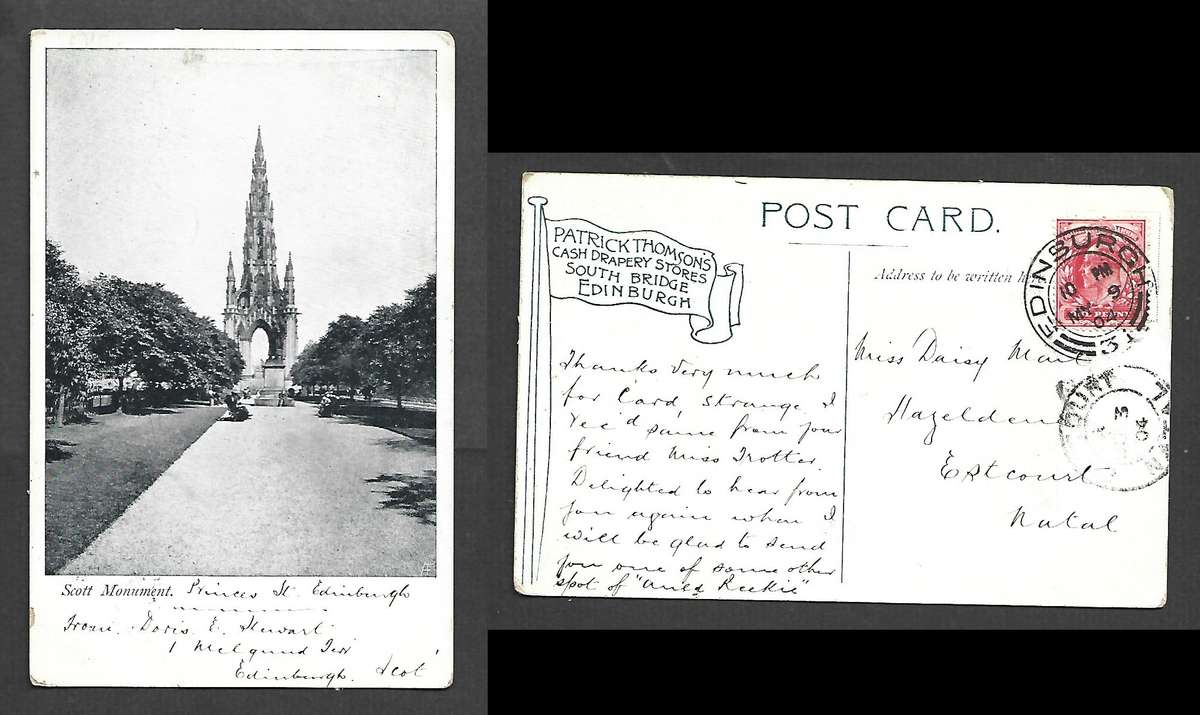 Scott Monument. Princes St. Edinburgh
From. Doris E. Stewart
1 Melgund Terr
Edinburgh. Scot'
PATRICK THOMSON'S
CASH DRAPERY STORES
SOUTH BRIDGE
EDINBURGH
POST CARD.
Address to be written
Thanks very much
for Card, strange I
rec'd same from your
friend Miss Trotter.
Delighted to hear from
you again when I
will be glad to send
you one of some other
spot of "Auld Reekie"
EDINBURGH
PM
9
04
31
Miss Daisy
Estcourt
Natal
COURT
04
NATAL